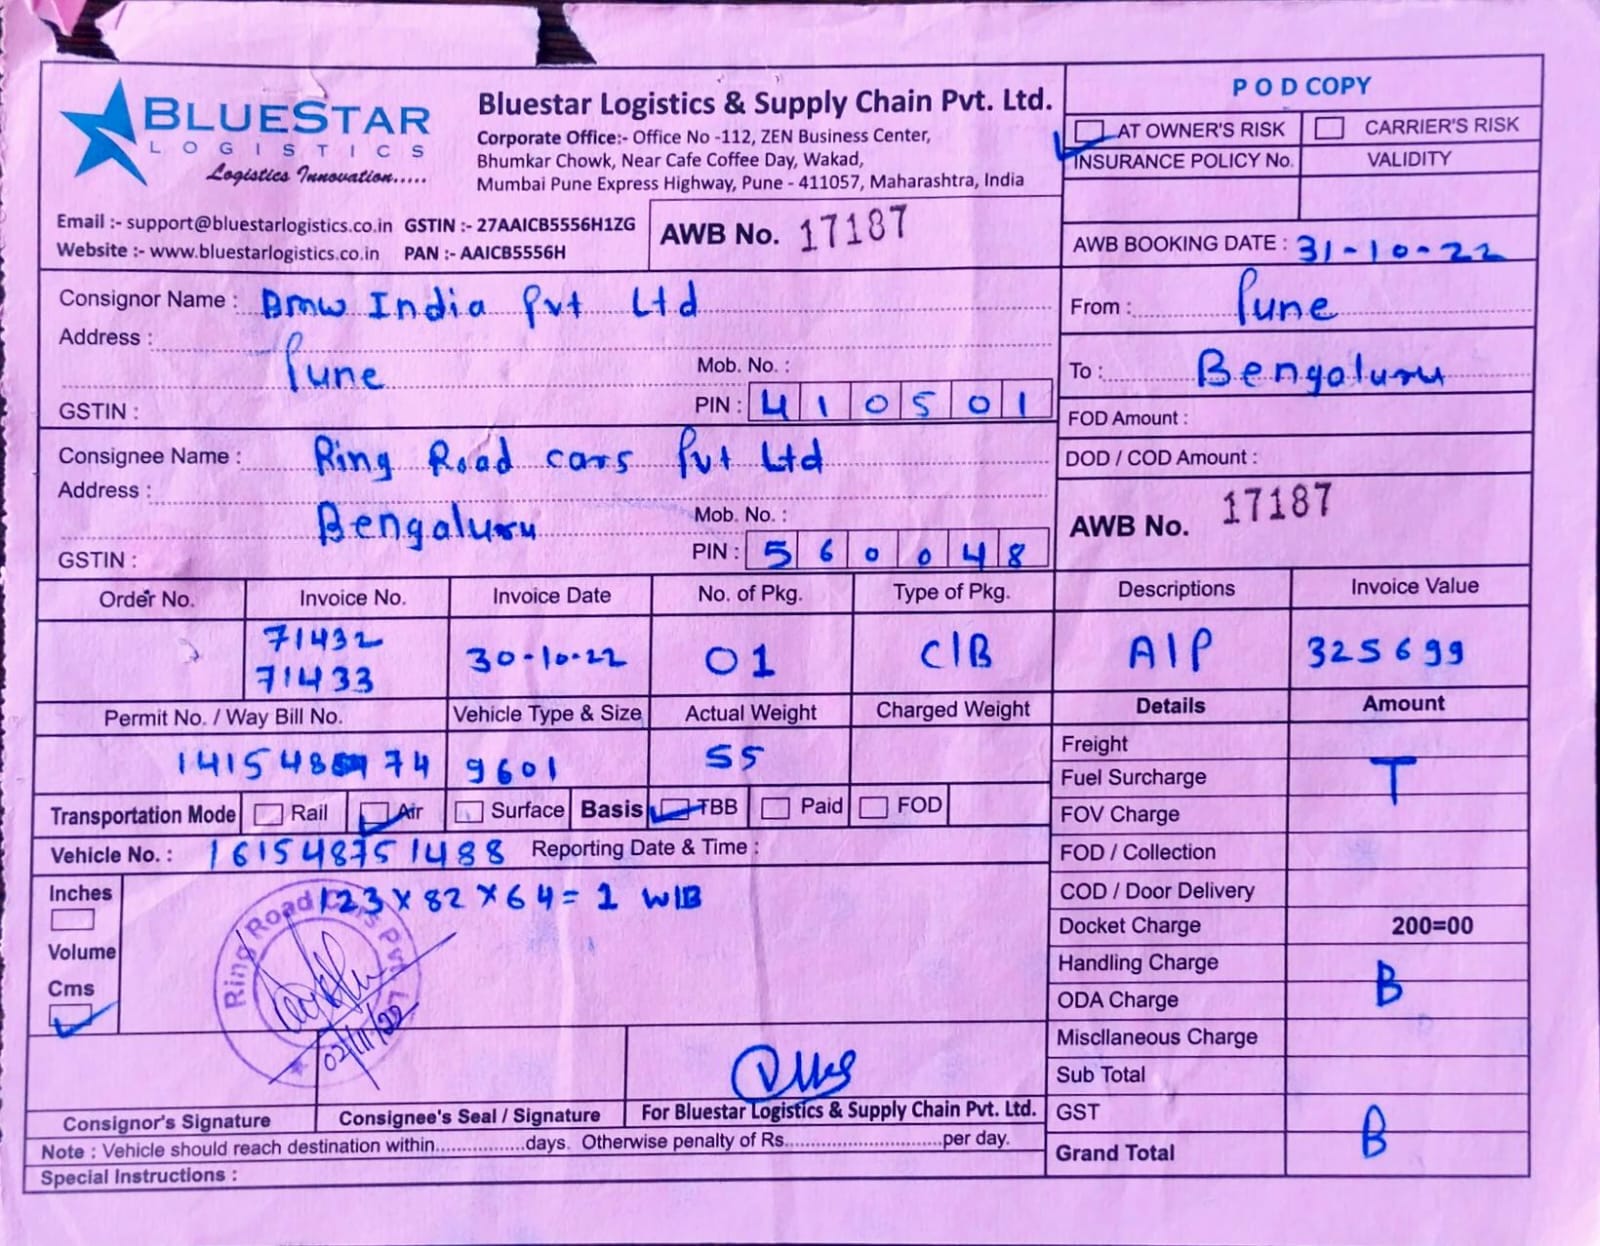 BLUESTAR
LOGISTICS
Logistics Innovation.....
Bluestar Logistics & Supply Chain Pvt. Ltd.
Corporate Office:- Office No -112, ZEN Business Center,
Bhumkar Chowk, Near Cafe Coffee Day, Wakad,
Mumbai Pune Express Highway, Pune - 411057, Maharashtra, India
Email :- support@bluestarlogistics.co.in GSTIN :- 27AAICB5556H1ZG
Website :- www.bluestarlogistics.co.in PAN :- AAICB5556H
AWB No. 17187
POD COPY
AT OWNER'S RISK CARRIER'S RISK
INSURANCE POLICY No. VALIDITY
AWB BOOKING DATE : 31-10-22
Consignor Name : BMW India Pvt Ltd
Address :
Pune
Mob. No. :
GSTIN :
PIN : 410501
From : Pune
To : Bengaluru
FOD Amount :
DOD / COD Amount :
AWB No. 17187
Consignee Name : Ring Road cars Pvt Ltd
Address :
Bengaluru
Mob. No. :
GSTIN :
PIN : 560048
Order No. Invoice No. Invoice Date No. of Pkg. Type of Pkg. Descriptions Invoice Value
71432
71433
30-10-22 01 C/B A/P 325699
Permit No. / Way Bill No. Vehicle Type & Size Actual Weight Charged Weight
9601 55
Transportation Mode Rail Air Surface Basis TBB Paid FOD
Vehicle No. : 161548751488 Reporting Date & Time :
Inches
Volume
Cms
123 x 82 x 64 = 1 W/B
Ring Road Cars Pvt. L
02/11/22
Details Amount
Freight
Fuel Surcharge T
FOV Charge
FOD / Collection
COD / Door Delivery
Docket Charge 200=00
Handling Charge
ODA Charge B
Miscllaneous Charge
Sub Total
GST
Grand Total B
Consignor's Signature Consignee's Seal / Signature For Bluestar Logistics & Supply Chain Pvt. Ltd.
Note : Vehicle should reach destination within.................days. Otherwise penalty of Rs..............................per day.
Special Instructions :